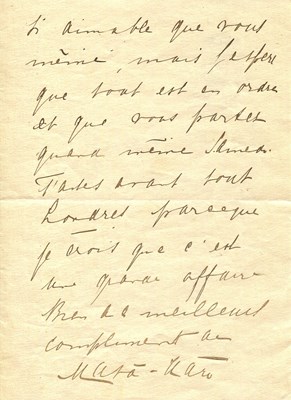 si aimable que vous
même, mais j'espère
que tout est en ordre
et que vous partez
quand même Samedi.
Faites avant tout
Londres parceque
je crois que c'est
une grande affaire
Bien des meilleurs
compliment de
Mata-Hari